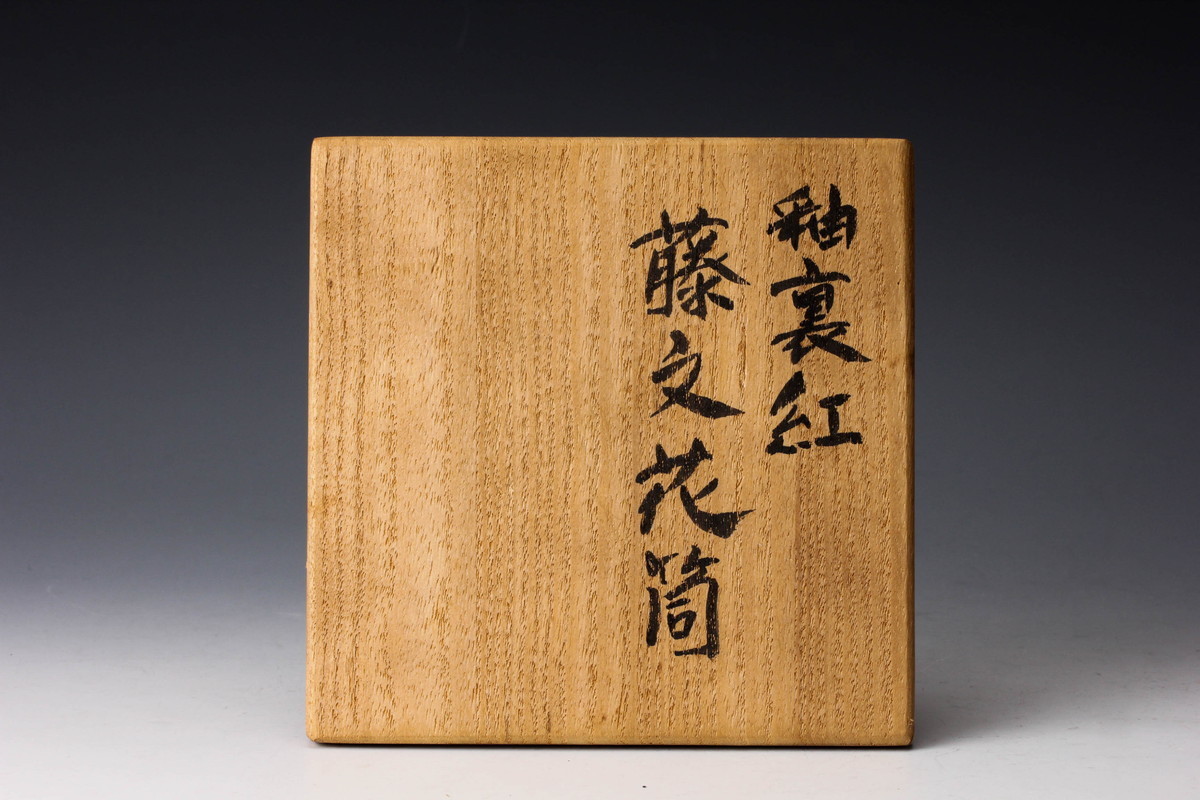 釉裏紅
藤文花筒